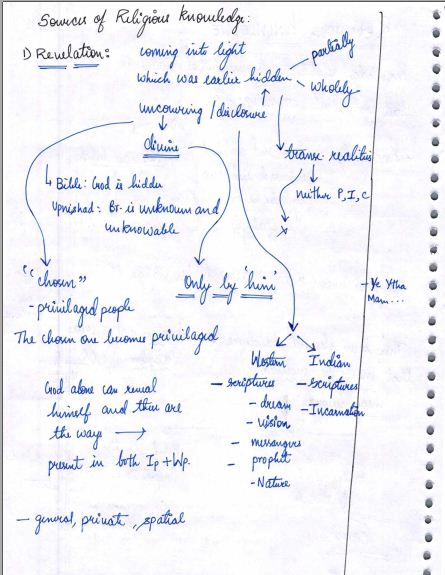 Sources of Religious Knowledge:
1) Revelation:
coming into light
which was earlier hidden
partially
wholely
uncouring / disclosure
divine
transc realities
neither P, I, C
x
Bible: God is hidden
Upnishad - Br. is unknown and
unknowable
"chosen"
- privilaged people
Only by 'him'
- Ye Ytha
Mam...
The chosen one becomes privilaged
Western
- scriptures
- dream
- vision
- messangers
- prophet
- Nature
Indian
- scriptures
- Incarnation
God alone can reveal
himself and there are
the ways →
present in both Ip + Wp.
- general, private, spatial